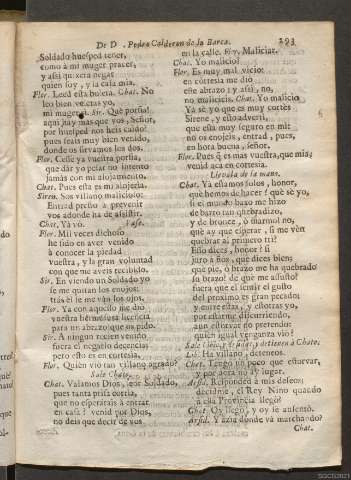 De D. Pedro Calderon de la Barca. 293
Soldado huesped tener,
como à mi mager pracer,
y assi quixera negar
quien soy, y la casa mia.
Flor. Leed esta bueta. Chat. No
leo bien
mi Sir. Què porfia!
aqui jay mas que vos, Señor,
por huesped nos heis caido!
pues seais muy bien venido,
donde os sirvamos los dos.
Flor. Cesse ya vuestra porfia,
que dàr yo pesar no intento
jamàs con mi alojamiento.
Chat. Pues esta es mi alojeria.
Siren. Sos villano malicioso:
Entrad presto à prevenir
vos adonde ha de assistir.
Chat. Yà vò. Vase.
Flor. Mil veces dichoso
he sido en aver venido
à conocer la piedad
vuestra, y la gran voluntad
con que me aveis recibido.
Sir. En viendo un Soldado yo
se me quitan los enojos:
tràs èl se me vàn los ojos.
Flor. Ya con aquesso me diò
vuestra hermosura licencia
para un abrazo que os pido.
Sir. A ningun recien venido
fuera el negarlo decencia;
pero esto es en cortesia.
Flor. Quièn viò tan villano agrado?
Sale Chato.
Chat. Valamos Dios, seor Soldado,
pues tanta prisa corria,
que no esperarais à entrar
en casa? venid por Dios,
no deis que decir de vos
en la calle. Flor. Maliciar.
Chat. Yo malicio?
Flor. Es muy mal vicio:
en cortesia me diò
este abrazo; y assi, no,
no malicieis. Chat. Yo malicio
Ya sè yo que es muy cortès
Sirene, y esto advertì,
que esta muy seguro en mì:
no os enojeis, entrad, pues,
en hora buena, señor.
Flor. Pues què es mas vuestra, que mia;
venid acà en cortesia.
Llevala de la mano.
Chat. Ya estamos solos, honor,
què hemos de hacer? què sè yo,
si el mundo baxo me hizo
de barro tan quebradizo,
y de bronce, ò marmol no,
què ay que esperar, si me vèn
quebrar al primero tri?
Esso dices, honor? sì
juro à ños, que dices bien;
què pie, ò brazo me ha quebrado
su brazo? de què me assusto?
fuera que el sentir el gusto
del proximo es gran pecado;
y entre estas, y estotras yo,
por estarme discurriendo,
aun estorvar no pretendo:
quièn igual venganza viò?
Chato.
Lis. Ha villano, deteneos.
Chat. Tengo un poco que estorvar,
y por aora no ay lugar.
Arsid. Responded à mis deseos;
decidme, el Rey Nino quando
à esta Provincia llegò?
Chat. Oy llegò, y oy se ausentò.
Arsid. Y azia dònde và marchando?
Chat.